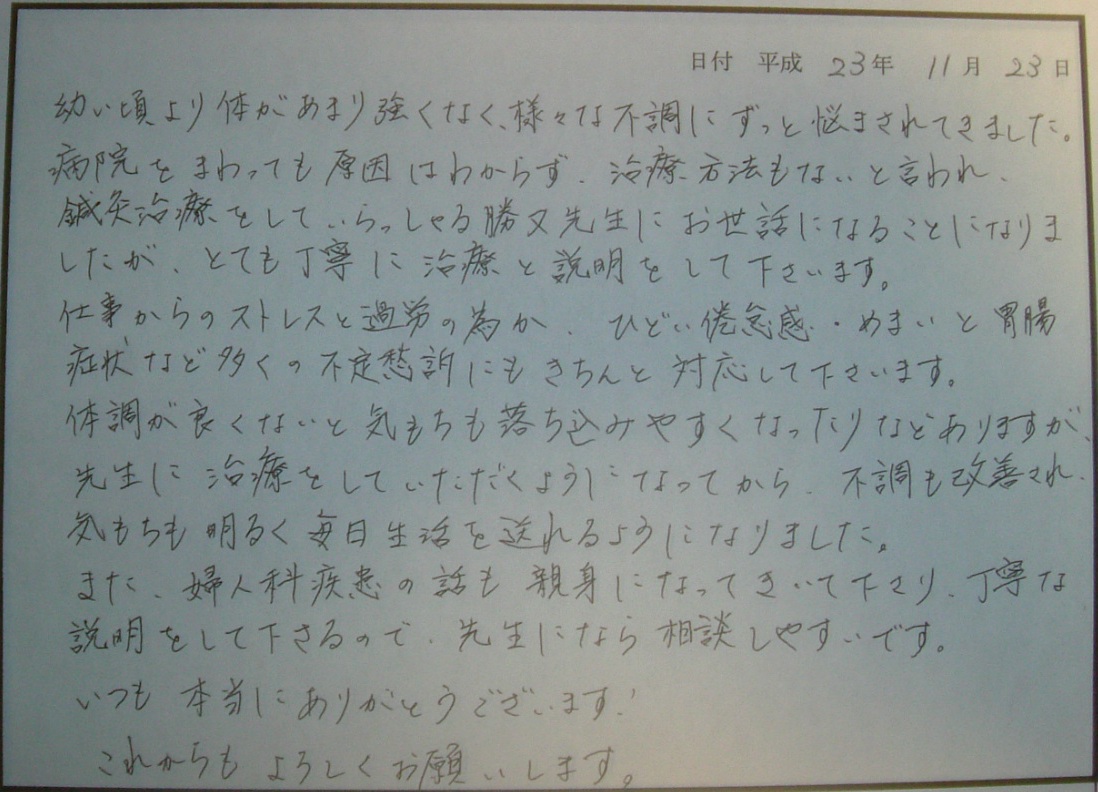 日付 平成 23年 11月 23日
幼い頃より体があまり強くなく、様々な不調にずっと悩まされてきました。
病院をまわっても原因はわからず、治療方法もないと言われ、
鍼灸治療をしていらっしゃる勝又先生にお世話になることになりま
したが、とても丁寧に治療と説明をして下さいます。
仕事からのストレスと過労の為か、ひどい倦怠感・めまいと胃腸
症状など多くの不定愁訴にもきちんと対応して下さいます。
体調が良くないと気もちも落ち込みやすくなったりなどありますが、
先生に治療をしていただくようになってから、不調も改善され、
気もちも明るく毎日生活を送れるようになりました。
また、婦人科疾患の話も親身になってきいて下さり、丁寧な
説明をして下さるので、先生になら相談しやすいです。
いつも本当にありがとうございます!
これからもよろしくお願いします。